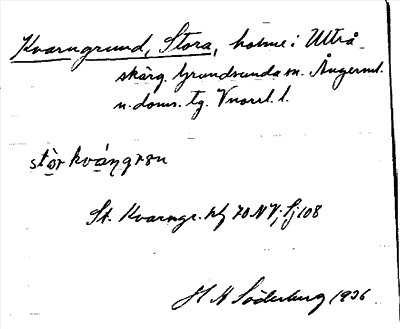 Kvarngrund, Stora, holme i Ultrå
skärg. Grundsunda sn. Ångerml.
n. doms. tg. Vnorrl. l.
stòr kváŋgrøn
St. Kvarngr. kbl 70 NV; Sj 108
H H Söderberg 1936